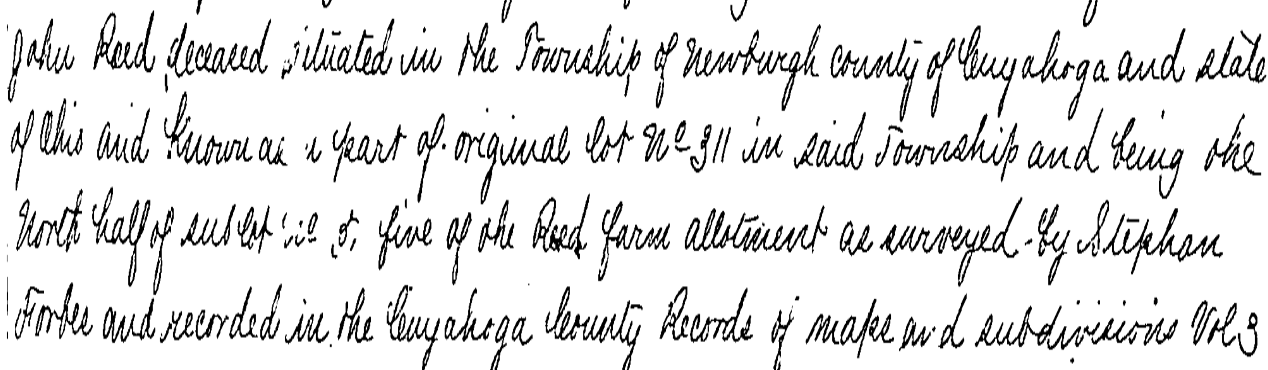 John Reed deceased situated in the Township of Newburgh county of Cuyahoga and state
of Ohio and Known as a part of original lot No 311 in said Township and being the
North half of sublot No 5, five of the Reed farm allotment as surveyed by Stephan
Forbes and recorded in the Cuyahoga County Records of maps and subdivisions Vol 3